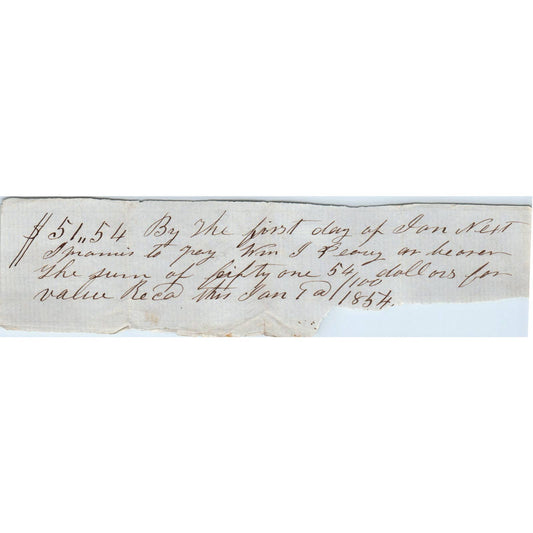 $51"54 By The first day of Jan Next
I promis to pay Wm I or bearer
the sum of fifty one 54/100 dollars for
value Recd this Jan 1854.